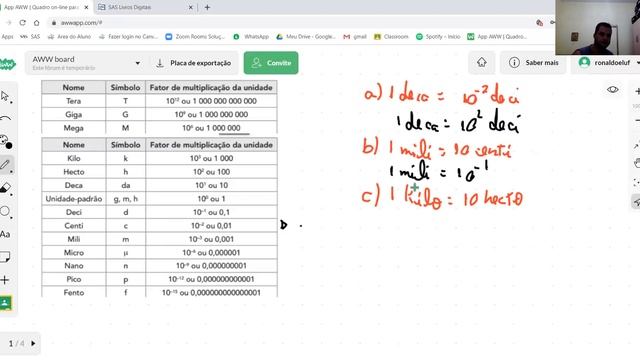 App AWW | Quadro on-line para
SAS Livros Digitais
awwapp.com/#
Apps
SAS
AO
Fazer login no Can...
Zoom Rooms Soluç...
Google
Meu Drive - Google...
gmail
Classroom
Spotify – Início
App AWW | Quadro...
AWW board
Este fórum é temporário
Placa de exportação
Convite
Saber mais
ronaldoeluf
Nome Símbolo Fator de multiplicação da unidade
Tera T 10¹² ou 1 000 000 000 000
Giga G 10⁹ ou 1 000 000 000
Mega M 10⁶ ou 1 000 000
Nome Símbolo Fator de multiplicação da unidade
Kilo k 10³ ou 1 000
Hecto h 10² ou 100
Deca da 10¹ ou 10
Unidade-padrão g, m, h 10⁰ ou 1
Deci d 10⁻¹ ou 0,1
Centi c 10⁻² ou 0,01
Mili m 10⁻³ ou 0,001
Micro μ 10⁻⁶ ou 0,000001
Nano n 10⁻⁹ ou 0,000000001
Pico p 10⁻¹² ou 0,000000000001
Fento f 10⁻¹⁵ ou 0,000000000000001
a) 1 deca = 10⁻² deci
1 deca = 10² deci
b) 1 mili = 10 centi
1 mili = 10⁻¹
c) 1 kilo = 10 hecto
1 / 4